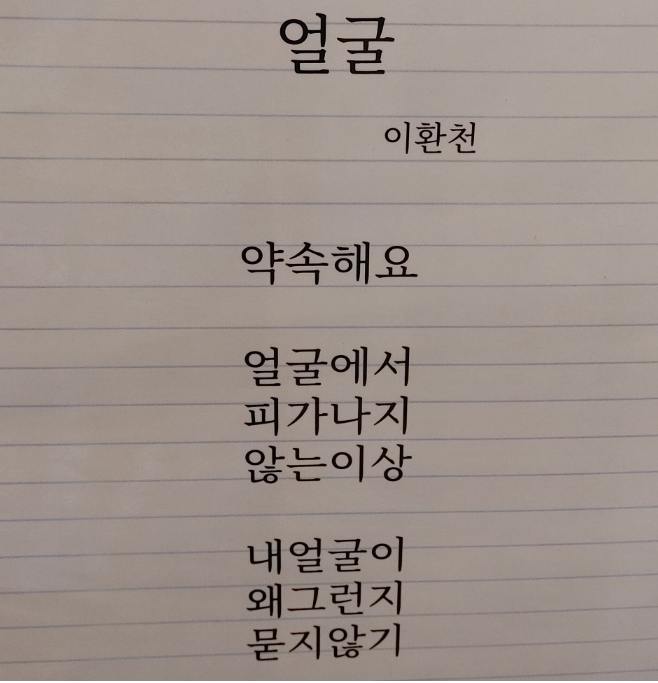 얼굴
이환천
약속해요
얼굴에서
피가나지
않는이상
내얼굴이
왜그런지
묻지않기